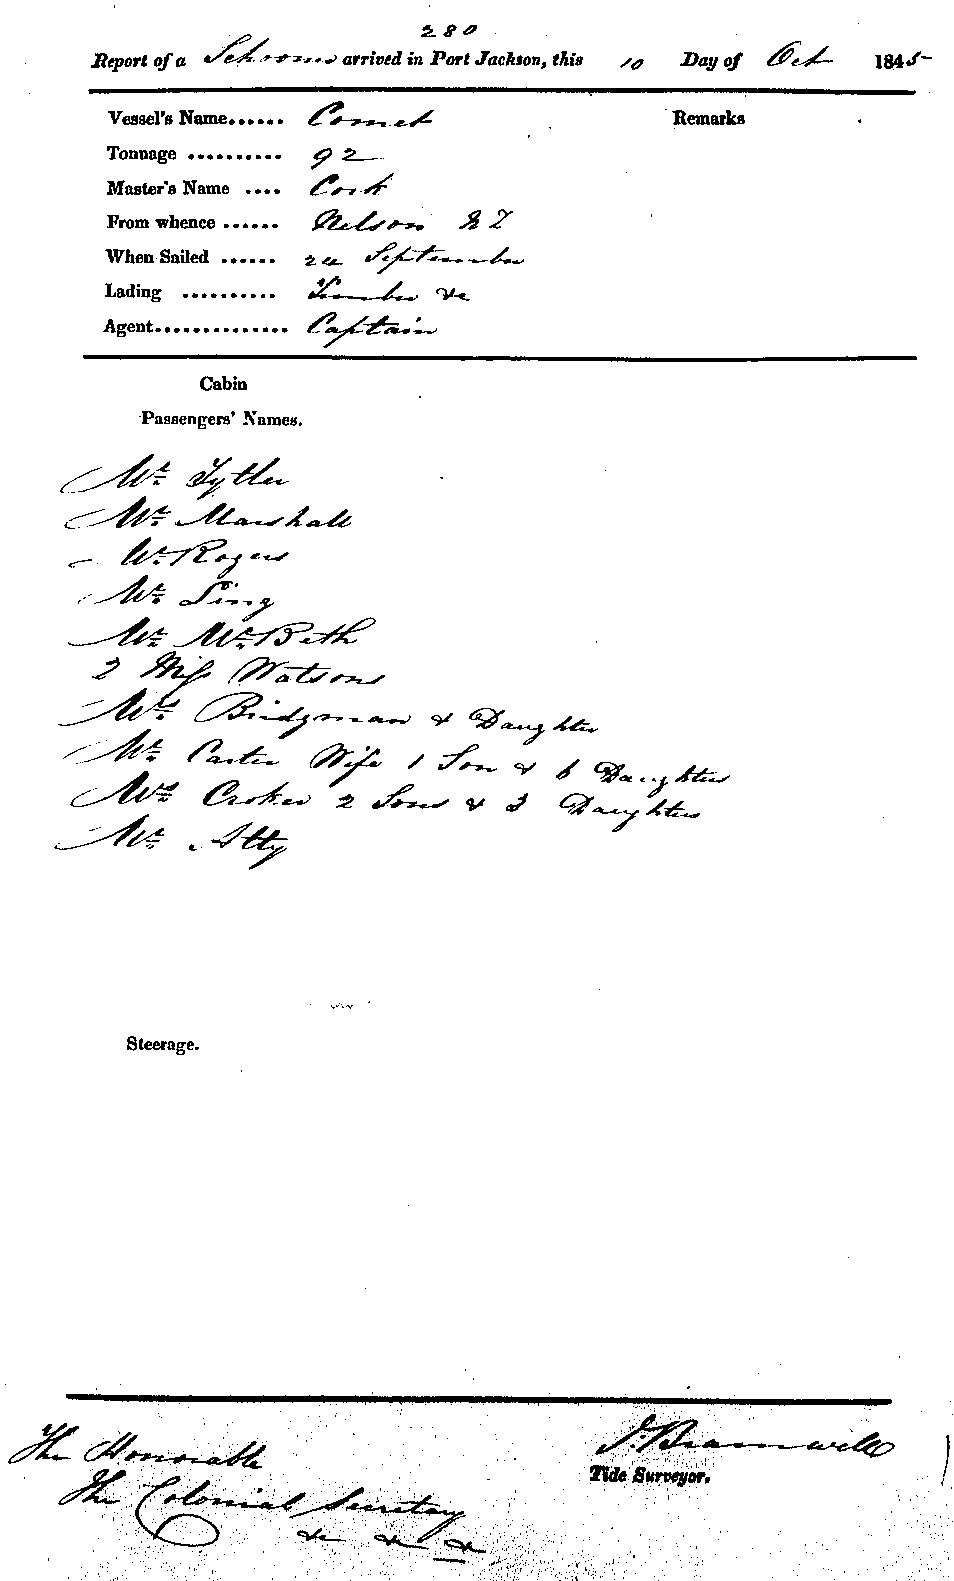 280
Report of a Schooner arrived in Port Jackson, this 10 Day of Oct 1845
Vessel's Name...... Comet
Remarks
Tonnage .......... 92
Master's Name .... Cork
From whence ...... Nelson N Z
When Sailed ...... 24 September
Lading .......... Timber &c
Agent.............. Captain
Cabin
Passengers' Names.
Mr Tytler
Mr Marshall
Mr Rogers
Mr Ling
Mr McBeth
2 Miss Watsons
Mrs Bridgman & Daughter
Mr Carter Wife 1 Son & 6 Daughters
Mrs Croker 2 Sons & 3 Daughters
Mr Atty
Steerage.
The Honorable
The Colonial Secretary
&c &c &c
J. Bramwell
Tide Surveyor.